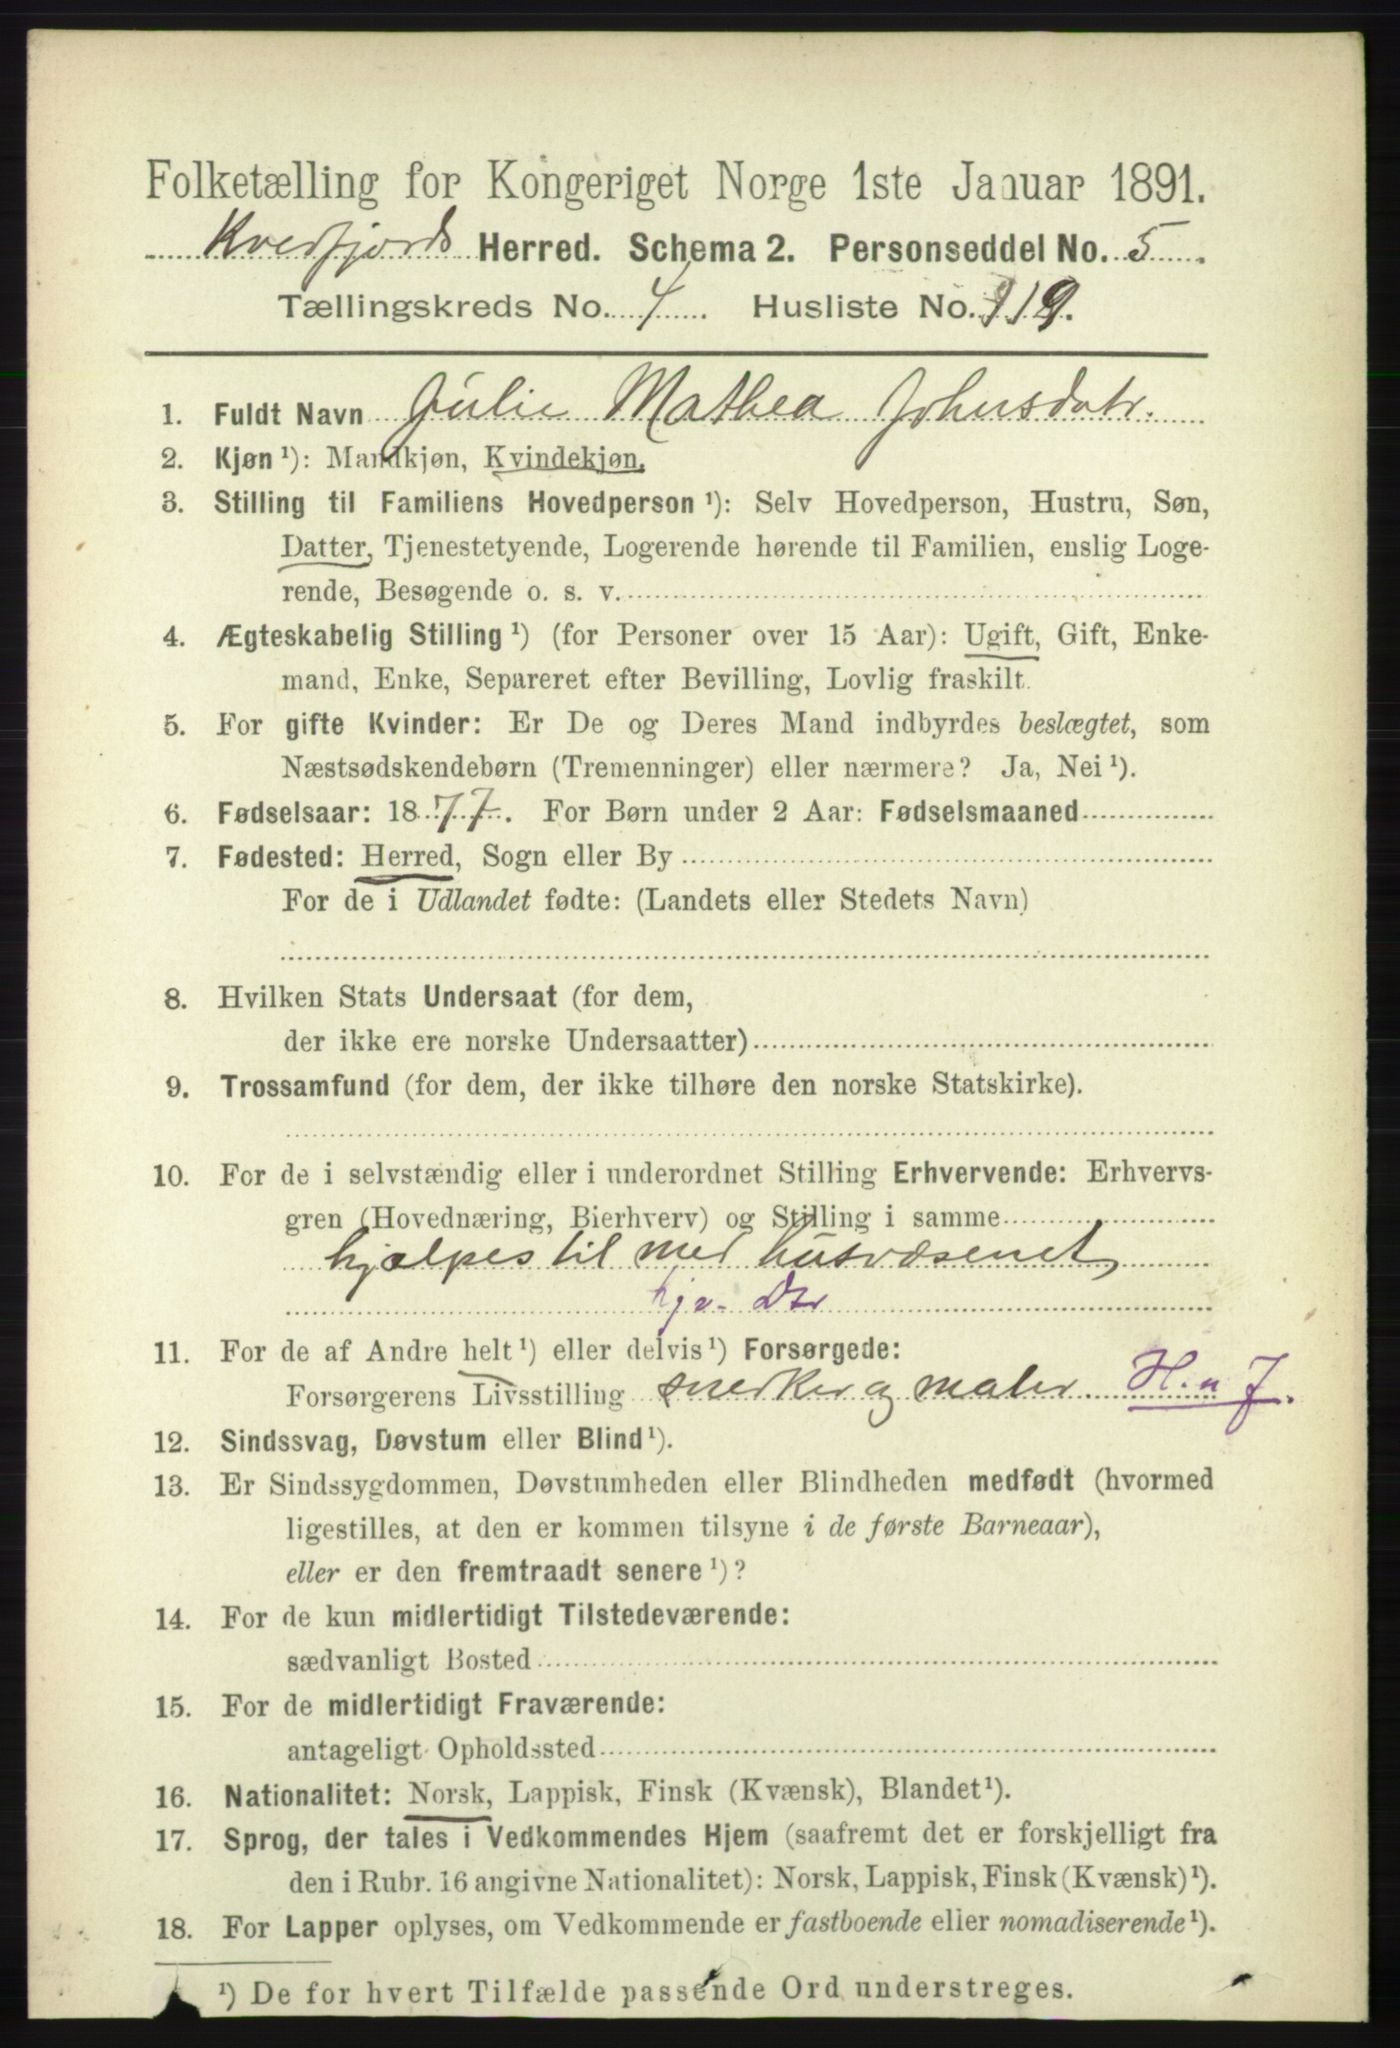 Folketælling for Kongeriget Norge 1ste Januar 1891.
Kvæfjords Herred. Schema 2. Personseddel No. 5
Tællingskreds No. 4 Husliste No. 119.
1. Fuldt Navn Julie Mathea Johnsdatr.
2. Kjøn ¹): Mandkjøn, Kvindekjøn.
3. Stilling til Familiens Hovedperson ¹): Selv Hovedperson, Hustru, Søn,
Datter, Tjenestetyende, Logerende hørende til Familien, enslig Loge-
rende, Besøgende o. s. v.
4. Ægteskabelig Stilling ¹) (for Personer over 15 Aar): Ugift, Gift, Enke-
mand, Enke, Separeret efter Bevilling, Lovlig fraskilt.
5. For gifte Kvinder: Er De og Deres Mand indbyrdes beslægtet, som
Næstsødskendebørn (Tremenninger) eller nærmere? Ja, Nei ¹).
6. Fødselsaar: 1877. For Børn under 2 Aar: Fødselsmaaned
7. Fødested: Herred, Sogn eller By
For de i Udlandet fødte: (Landets eller Stedets Navn)
8. Hvilken Stats Undersaat (for dem,
der ikke ere norske Undersaatter)
9. Trossamfund (for dem, der ikke tilhøre den norske Statskirke).
10. For de i selvstændig eller i underordnet Stilling Erhvervende: Erhvervs-
gren (Hovednæring, Bierhverv) og Stilling i samme
hjælpes til med husvæsenet,
hjv. Dtr
11. For de af Andre helt ¹) eller delvis ¹) Forsørgede:
Forsørgerens Livsstilling snerker og maler H. u J.
12. Sindssvag, Døvstum eller Blind ¹).
13. Er Sindssygdommen, Døvstumheden eller Blindheden medfødt (hvormed
ligestilles, at den er kommen tilsyne i de første Barneaar),
eller er den fremtraadt senere ¹)?
14. For de kun midlertidigt Tilstedeværende:
sædvanligt Bosted
15. For de midlertidigt Fraværende:
antageligt Opholdssted
16. Nationalitet: Norsk, Lappisk, Finsk (Kvænsk), Blandet ¹).
17. Sprog, der tales i Vedkommendes Hjem (saafremt det er forskjelligt fra
den i Rubr. 16 angivne Nationalitet): Norsk, Lappisk, Finsk (Kvænsk) ¹).
18. For Lapper oplyses, om Vedkommende er fastboende eller nomadiserende ¹).
¹) De for hvert Tilfælde passende Ord understreges.